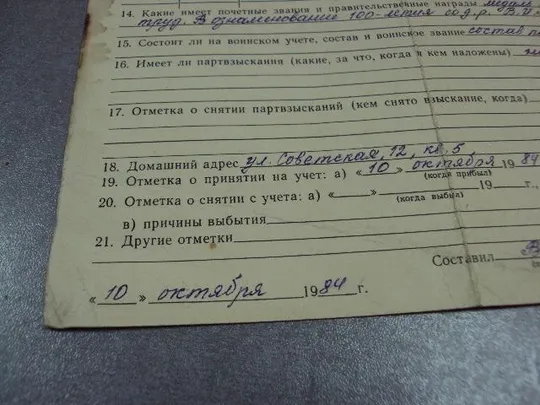 14. Какие имеет почетные звания и правительственные награды медаль
труд. В ознаменование 100-летия со д. р. В. И.
15. Состоит ли на воинском учете, состав и воинское звание состав
16. Имеет ли партвзыскания (какие, за что, когда и кем наложены)
17. Отметка о снятии партвзысканий (кем снято взыскание, когда)
18. Домашний адрес ул. Советская, 12, кв. 5
19. Отметка о принятии на учет: а) «10» октября 1984
(когда прибыл)
20. Отметка о снятии с учета: а) « » 19 г.,
(когда выбыл)
в) причины выбытия
21. Другие отметки
Составил В
«10» октября 1984 г.